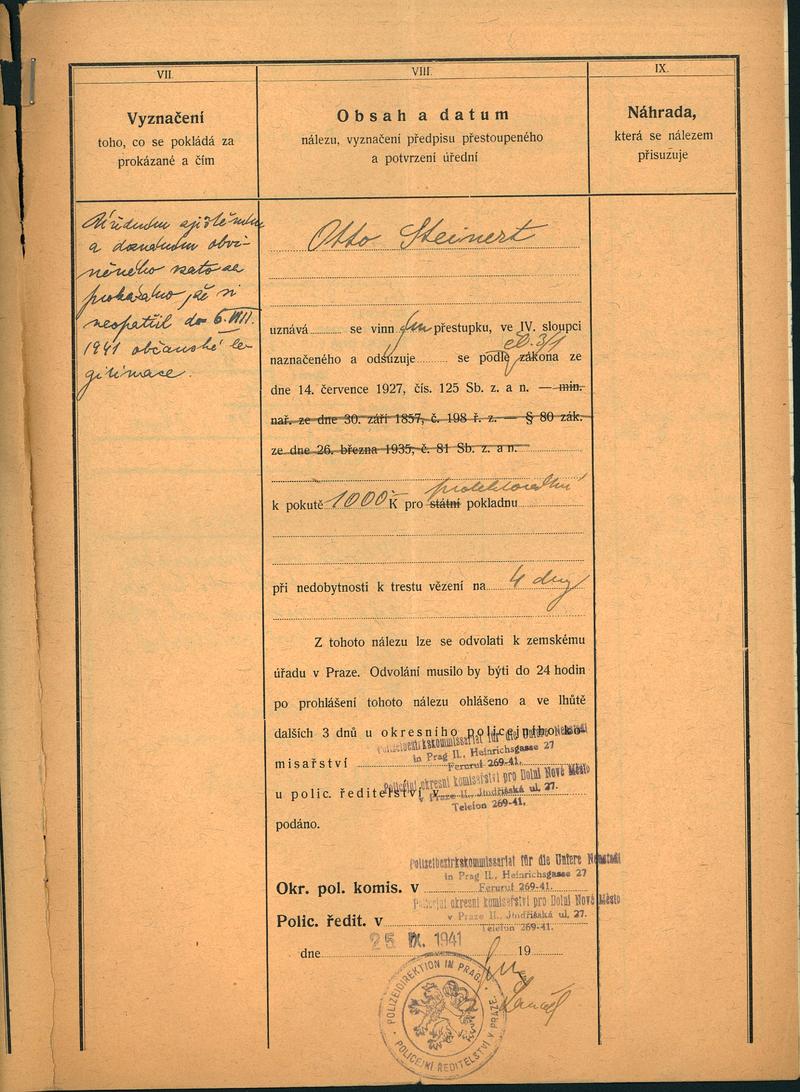 VII.
Vyznačení
toho, co se pokládá za
prokázané a čím
VIII.
Obsah a datum
nálezu, vyznačení předpisu přestoupeného
a potvrzení úřední
IX.
Náhrada,
která se nálezem
přisuzuje
Úředním zjištěním
a doznáním obvi-
něného
prokázáno, že si
neopatřil do 6. VIII.
1941 občanské le-
gitimace.
Otto Steinert
uznává se vinn ým přestupku, ve IV. sloupci
naznačeného a odsuzuje se podle čl. 3/1 zákona ze
dne 14. července 1927, čís. 125 Sb. z. a n. — min.
nař. ze dne 30. září 1857, č. 198 ř. z. — § 80 zák.
ze dne 26. března 1935, č. 81 Sb. z. a n.
protektorátní
k pokutě 1000.- K pro státní pokladnu
při nedobytnosti k trestu vězení na 4 dny
Z tohoto nálezu lze se odvolati k zemskému
úřadu v Praze. Odvolání musilo by býti do 24 hodin
po prohlášení tohoto nálezu ohlášeno a ve lhůtě
dalších 3 dnů u okresního policejního ko-
misařství
Polizeibezirkskommissariat für die Untere Neustadt
in Prag II., Heinrichsgasse 27
Ferurut 269-41.
u polic. ředitelství v
Policejní okresní komisařství pro Dolní Nové Město
v Praze II., Jindřišská ul. 27.
Telefon 269-41.
podáno.
Okr. pol. komis. v
Polizeibezirkskommissariat für die Untere Neustadt
in Prag II., Heinrichsgasse 27
Ferurut 269-41.
Polic. ředit. v
Policejní okresní komisařství pro Dolní Nové Město
v Praze II., Jindřišská ul. 27.
Telefon 269-41.
dne 25. IX. 1941 19
POLIZEIDIREKTION IN PRAG
POLICEJNÍ ŘEDITELSTVÍ V PRAZE